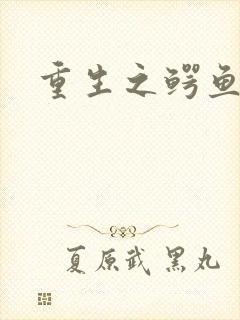 重生之鳄鱼
夏原武 黑丸